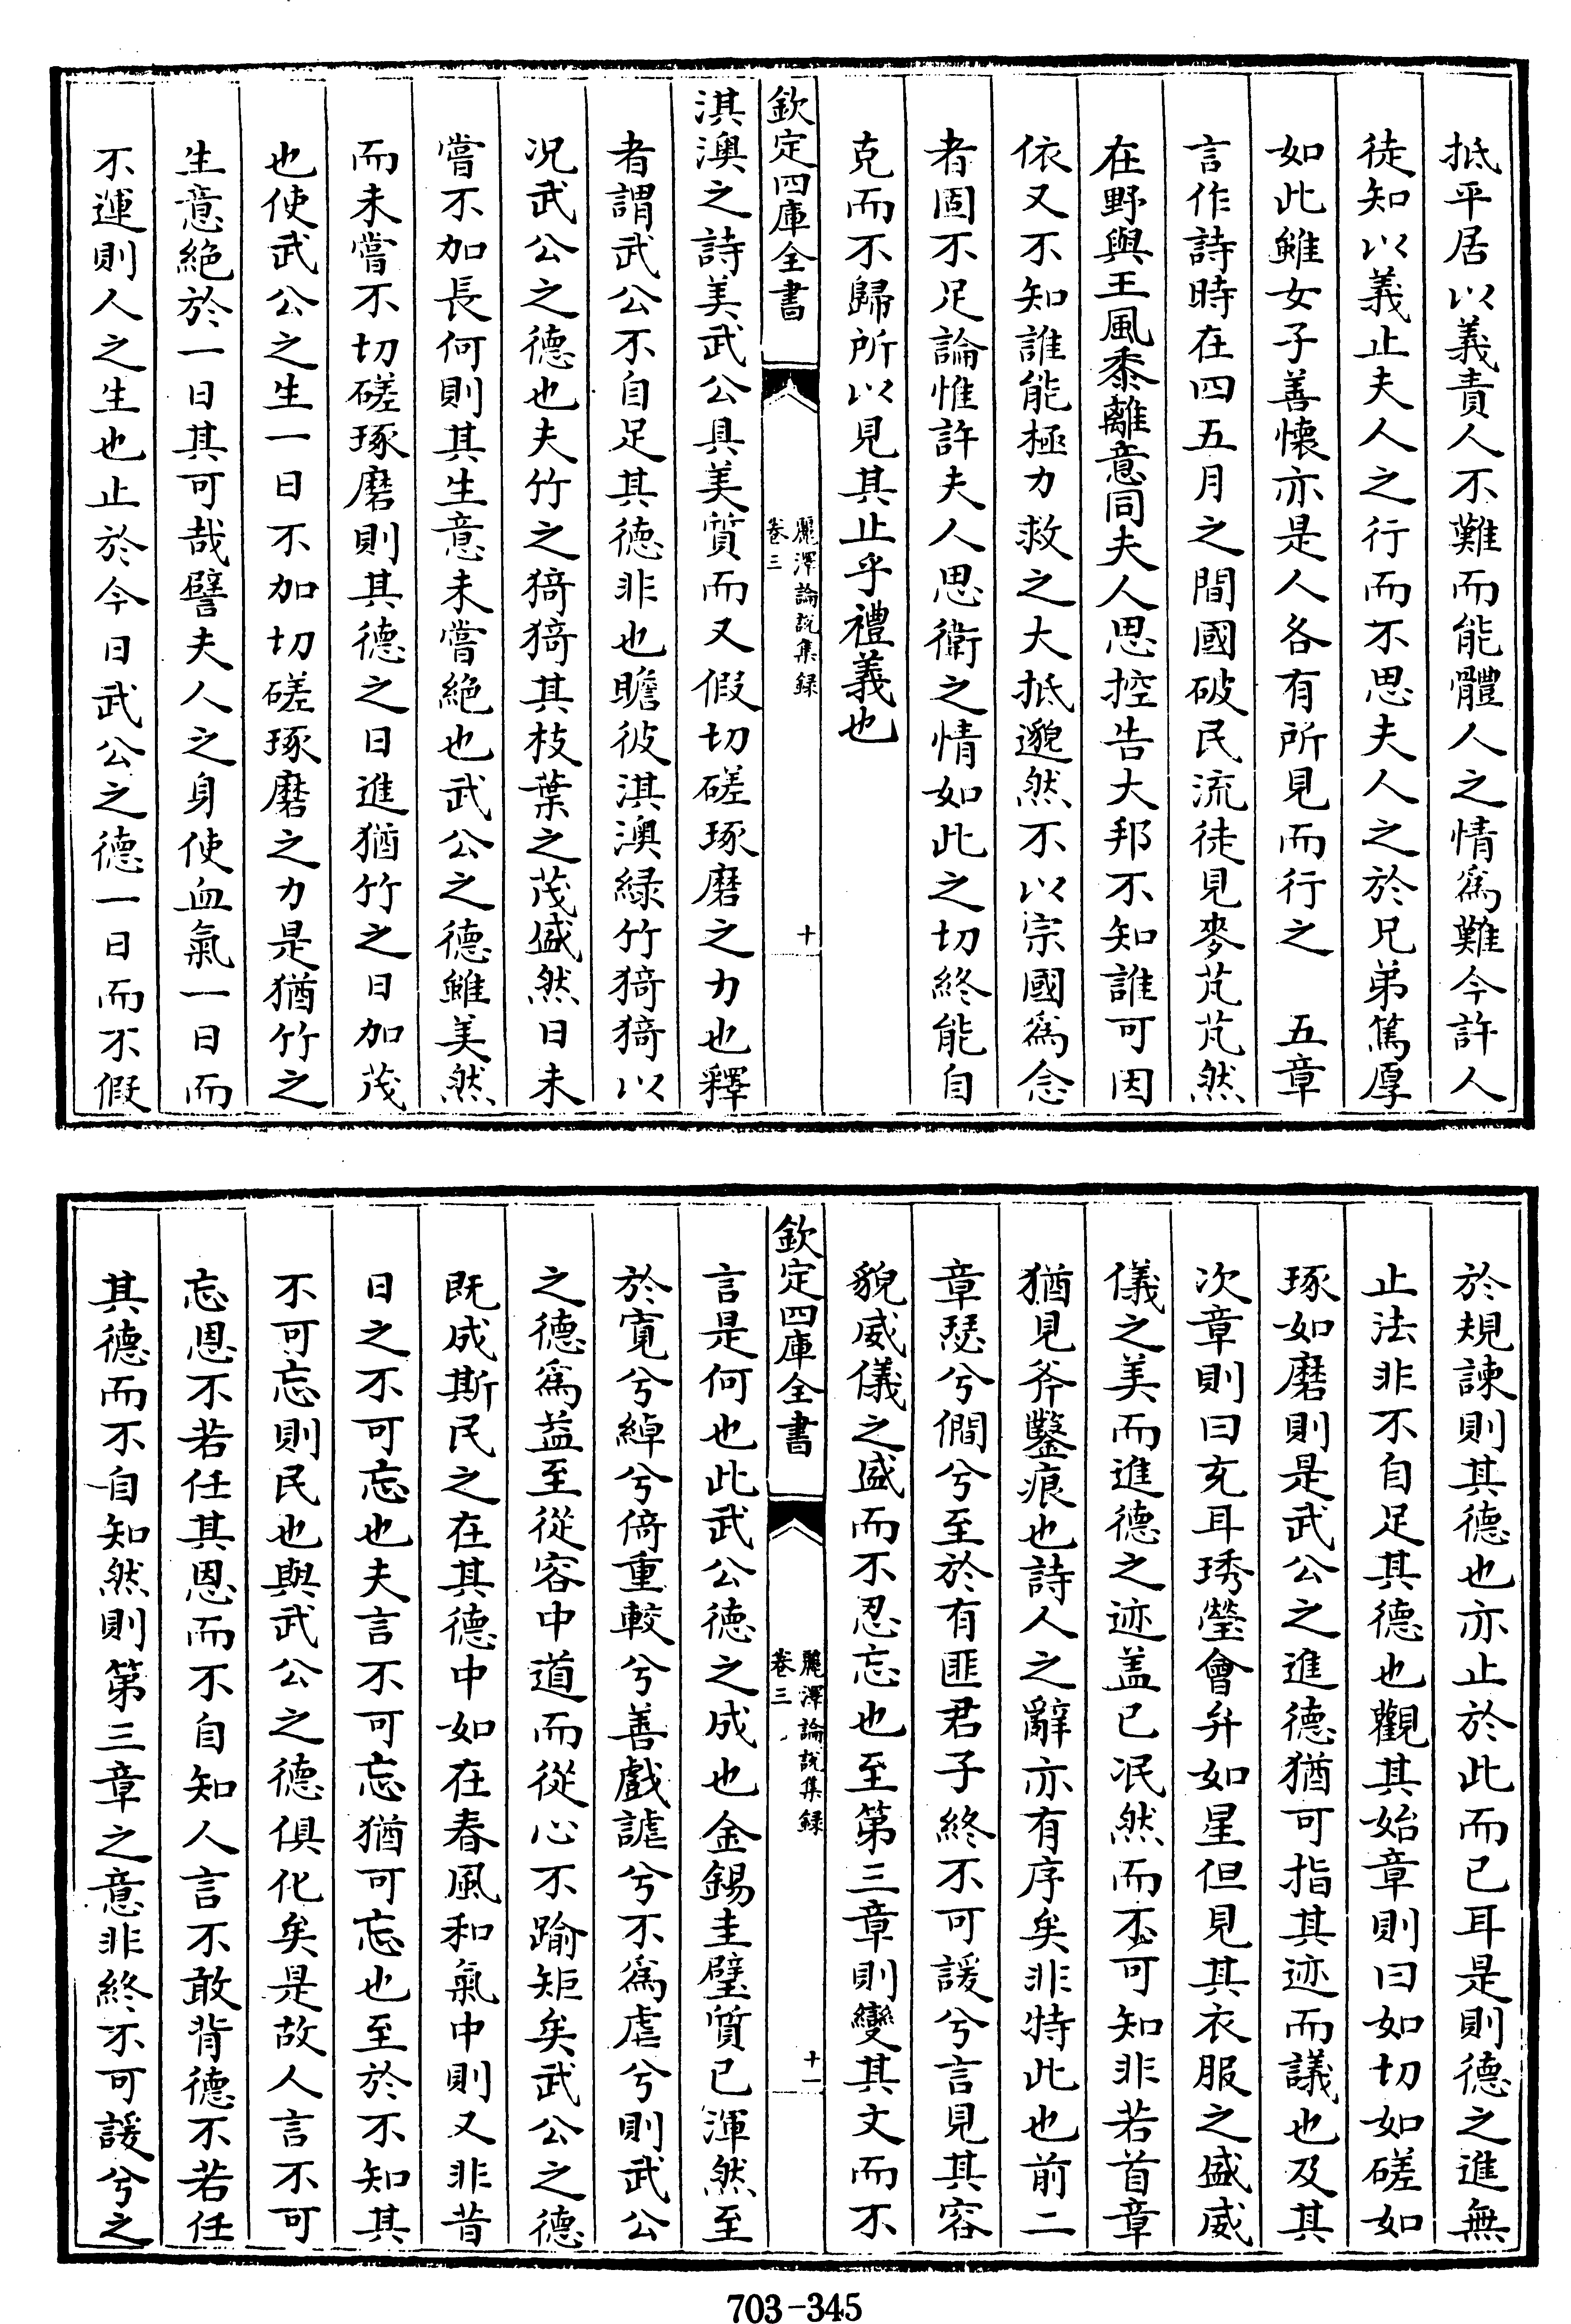 抵平居以義責人不難而能體人之情爲難今許人
徒知以義止夫人之行而不思夫人之於兄弟篤厚
如此雖女子善懷亦是人各有所見而行之　五章
言作詩時在四五月之間國破民流徒見麥芃芃然
在野與王風黍離意同夫人思控告大邦不知誰可因
依又不知誰能極力救之大抵邈然不以宗國爲念
者固不足論惟許夫人思衛之情如此之切終能自
克而不歸所以見其止乎禮義也
欽定四庫全書
麗澤論說集録
卷三
十
淇澳之詩美武公具美質而又假切磋琢磨之力也釋
者謂武公不自足其德非也瞻彼淇澳緑竹猗猗以
况武公之德也夫竹之猗猗其枝葉之茂盛然日未
嘗不加長何則其生意未嘗絶也武公之德雖美然
而未嘗不切磋琢磨則其德之日進猶竹之日加茂
也使武公之生一日不加切磋琢磨之力是猶竹之
生意絶於一日其可哉譬夫人之身使血氣一日而
不運則人之生也止於今日武公之德一日而不假
於規諫則其德也亦止於此而已耳是則德之進無
止法非不自足其德也觀其始章則曰如切如磋如
琢如磨則是武公之進德猶可指其迹而議也及其
次章則曰充耳琇瑩會弁如星但見其衣服之盛威
儀之美而進德之迹盖已泯然而不可知非若首章
猶見斧鑿痕也詩人之辭亦有序矣非特此也前二
章瑟兮僩兮至於有匪君子終不可諼兮言見其容
貌威儀之盛而不忍忘也至第三章則變其文而不
欽定四庫全書
麗澤論說集録
卷三
十一
言是何也此武公德之成也金錫圭璧質已渾然至
於寬兮綽兮倚重較兮善戲謔兮不爲虐兮則武公
之德爲益至從容中道而從心不踰矩矣武公之德
既成斯民之在其德中如在春風和氣中則又非昔
日之不可忘也夫言不可忘猶可忘也至於不知其
不可忘則民也與武公之德俱化矣是故人言不可
忘恩不若任其恩而不自知人言不敢背德不若任
其德而不自知然則第三章之意非終不可諼兮之
703-345